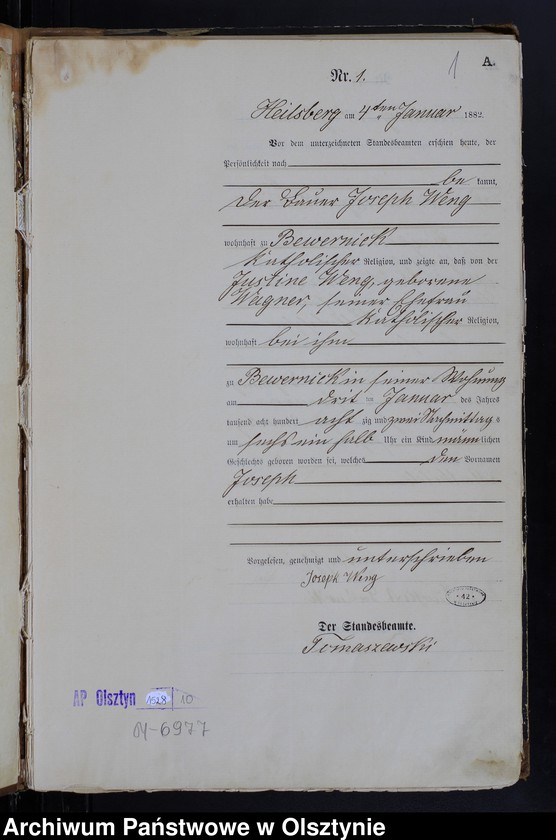 1
A.
Nr. 1.
Heilsberg am 4ten Januar 1882.
Vor dem unterzeichneten Standesbeamten erschien heute, der
Persönlichkeit nach
be kannt,
der Bauer Joseph Weng
wohnhaft zu Bewernick
katholischer Religion, und zeigte an, daß von der
Justine Weng, geborene
Wagner, seiner Ehefrau
katholischer Religion,
wohnhaft bei ihm
zu Bewernick in seiner Wohnung
am drit ten Januar des Jahres
tausend acht hundert acht zig und zwei Nachmittag
um sechs ein halb Uhr ein Kind männ lichen
Geschlechts geboren worden sei, welches den Vornamen
Joseph
erhalten habe
Vorgelesen, genehmigt und unterschrieben
Joseph Weng
42
Der Standesbeamte.
Tomaszewski
AP Olsztyn 1528 10
M-6977
Archiwum Państwowe w Olsztynie